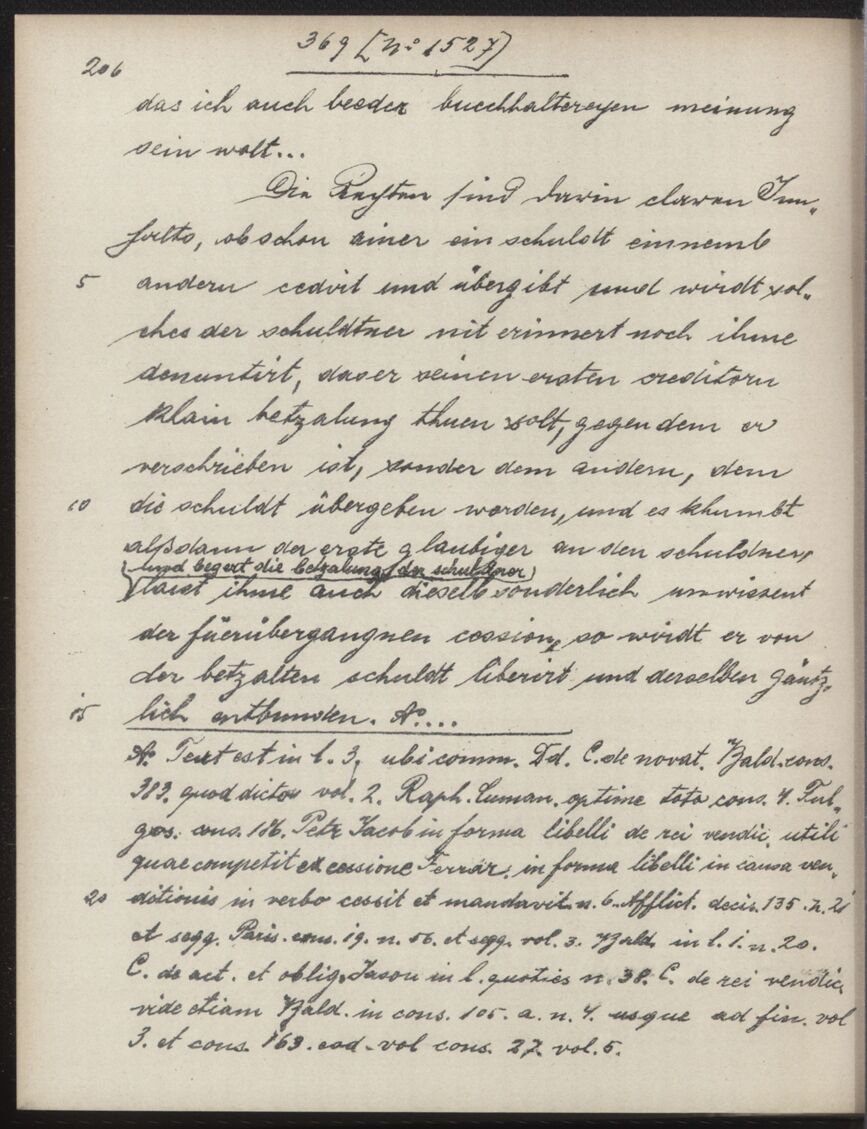 369 [No 1527]
206
das ich auch beeder buechhaltereyen meinung
sein wolt...
Die Rechten sind darin claren Inn„
halts, obschon ainer ein schuldt einnemb
5 andern cedirt und übergibt und wirdt sol„
ches der schuldtner nit erinnert noch ihme
denuntirt, das er seinen ersten creditorn
klain betzalung thuen solt, gegen dem er
verschrieben ist, sonder dem andern, dem
10 die schuldt übergeben worden, und es khumbt
alßdann der erste glaubiger an den schuldner,
(und begert die betzalung, der schuldner)
laist ihme auch dieselb sonderlich unwissent
der fürübergangnen cession, so wirdt er von
der betzalten schuldt liberirt und derselben gäntz„
15 lich entbunden. A°....
A. Text est in l. 3, ubi comm. Dd. C. de novat. Bald. cons.
383. quod dictos vol. 2. Raph. Cuman. optime toto cons. 4. Ful„
gos. cons. 186. Petr Jacob in forma libelli de rei vendic. utili
quae competit ex cessione Ferrar. in forma libelli in causa ven„
20 ditionis in verbo cessit et mandavit n. 6. Afflict. decis. 135. n. 21
et segg. Paris. cons. 19. n. 56. et segg. vol. 3. Bald. in l. 1. n. 20.
C. de act. et oblig. Jason in l. quoties n. 38. C. de rei vendic.
vide etiam Bald. in cons. 105. a. n. 4. usque ad fin. vol
3. et cons. 163. eod. vol cons. 27. vol. 5.